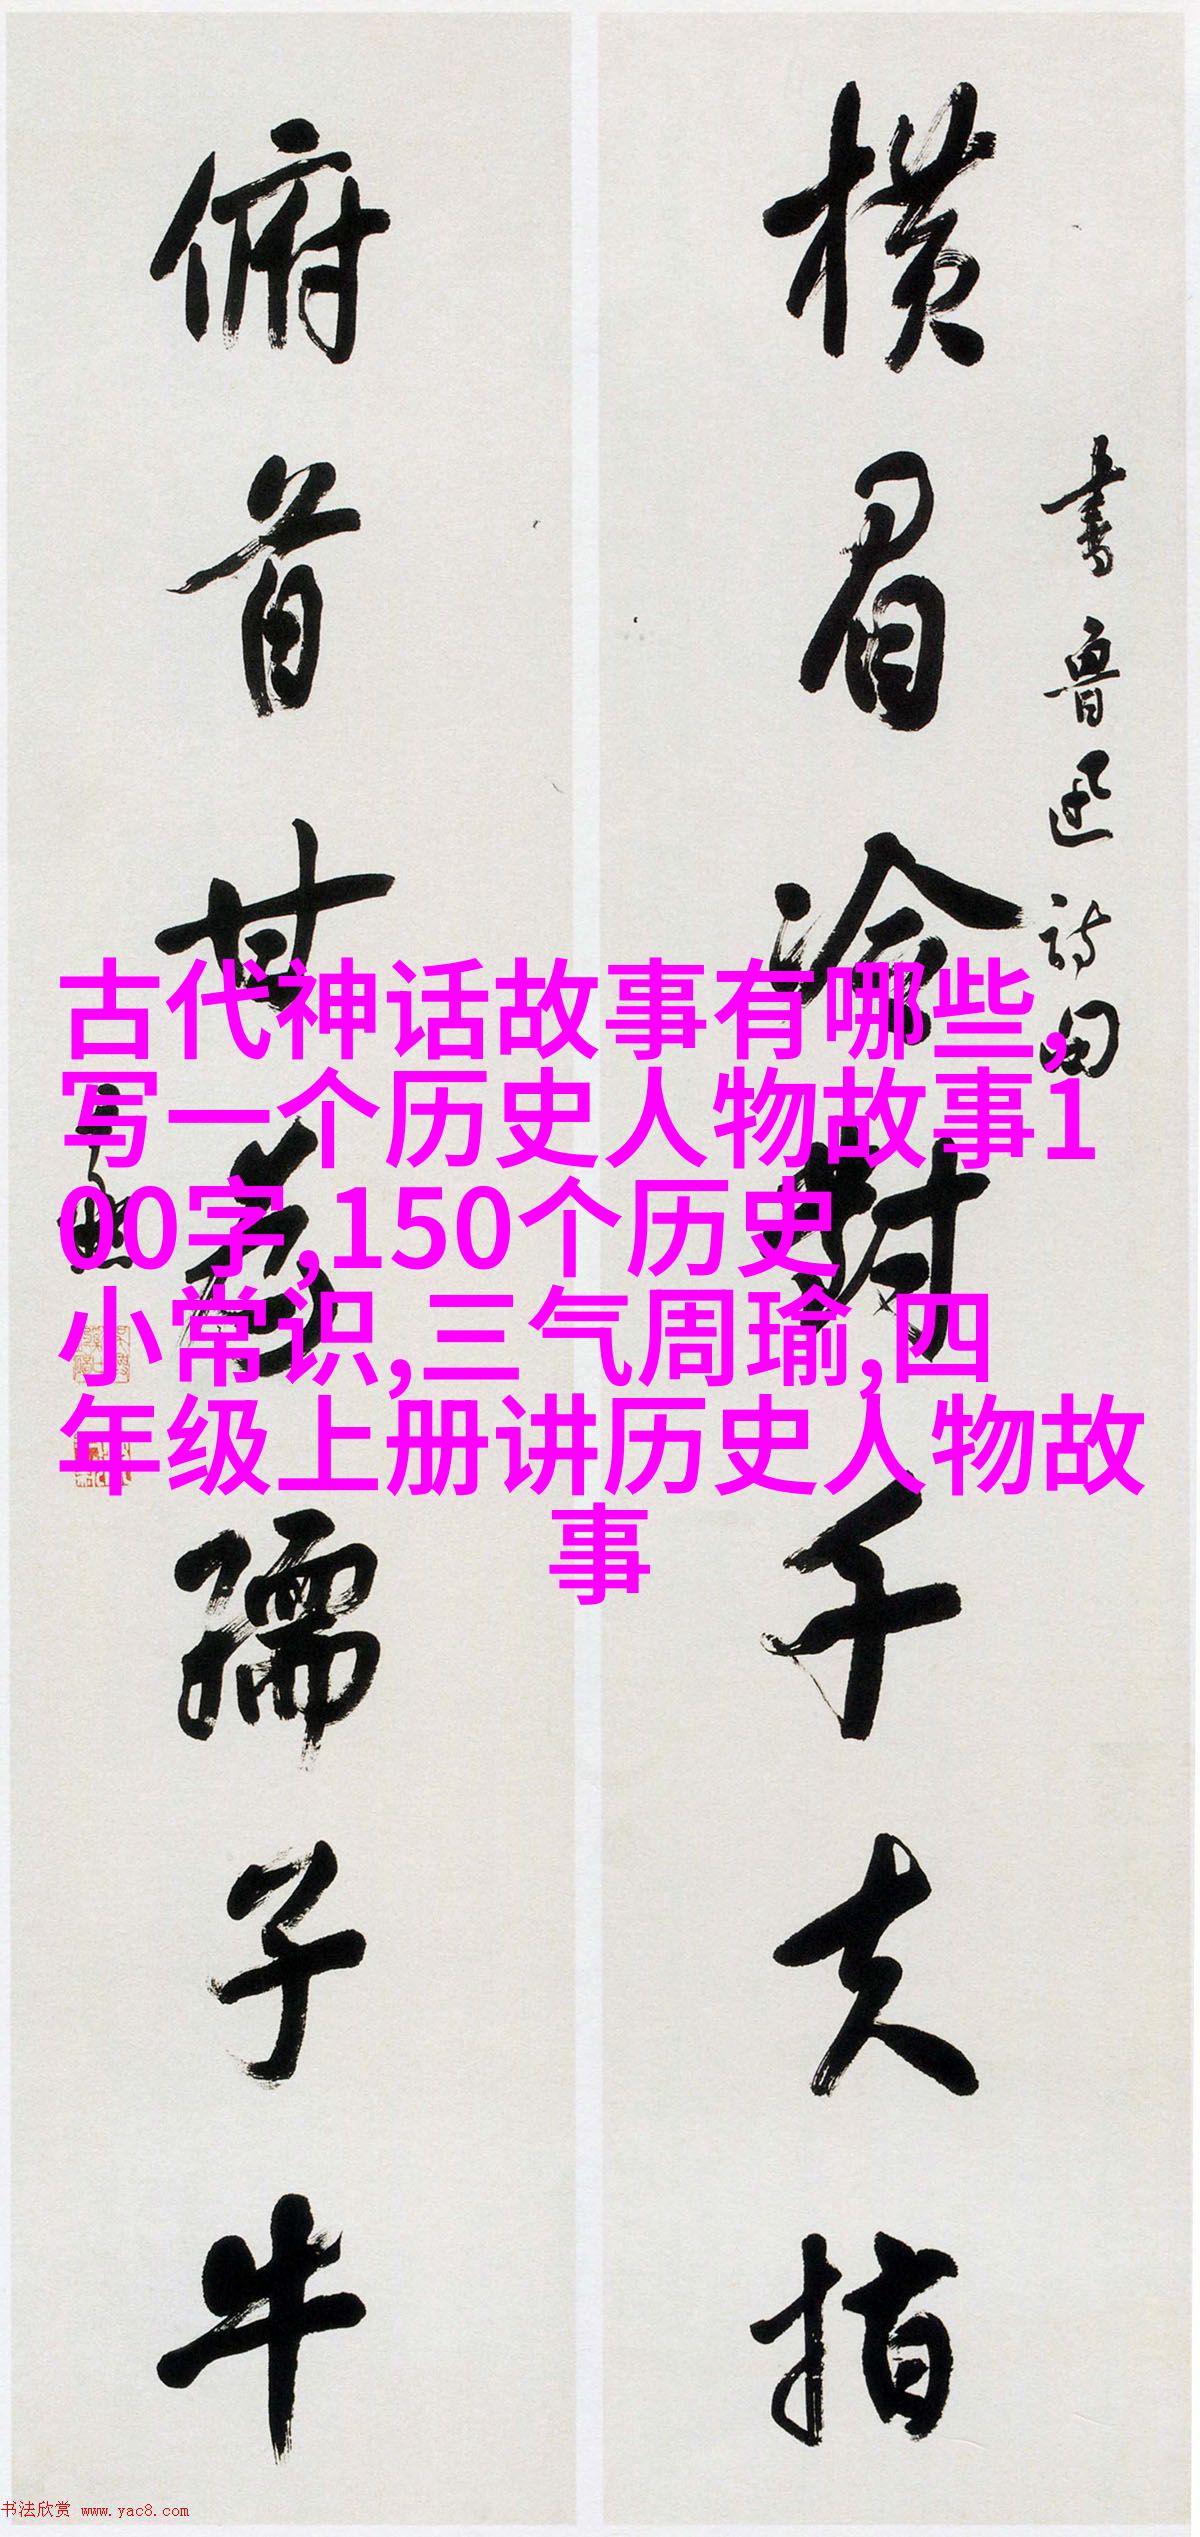 横眉冷對千夫指
書魯迅詩句
俯首甘為孺子牛
古代神话故事有哪些,
写一个历史人物故事1
00字,150个历史
小常识,三气周瑜,四
年级上册讲历史人物故
事
书法欣赏 www.yac8.com